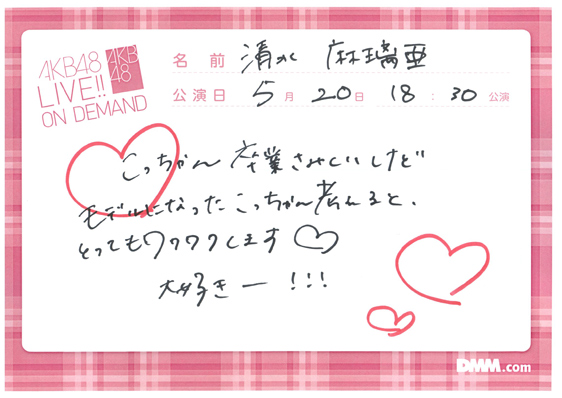 AKB48
LIVE!!
ON DEMAND
AKB
48
名前 清水 麻璃亜
公演日 5月 20日 18:30公演
こっちゃん 卒業さみしいけど
モデルになったこっちゃん考えると、
とってもワクワクします♡
大好きー!!!
DMM.com